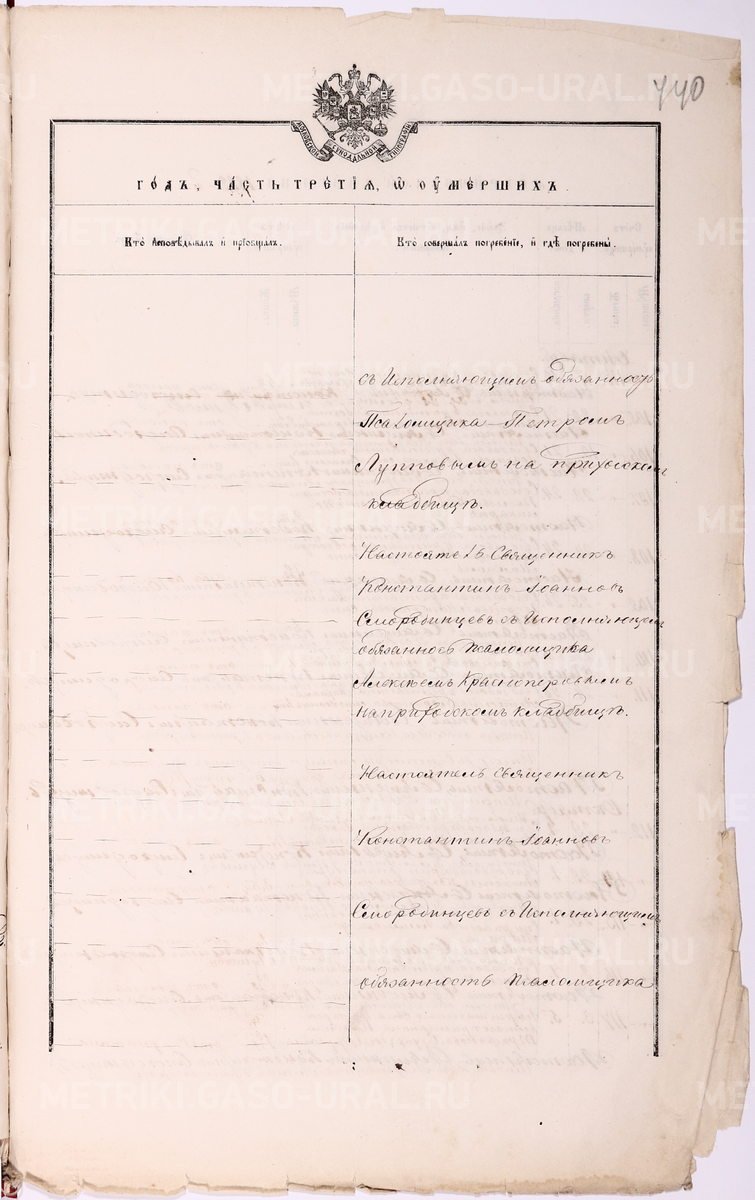 METRIKI.GASO-URAL.RU
440
МОСКОВСКОЙ СѴНОДАЛЬНОЙ ТИПОГРАФІИ
ГО́ДЪ, ЧА́СТЬ ТРЕ́ТІѦ, Ѡ҆ ОУ҆МЕ́РШИХЪ.
Кто̀ и҆сповѣ́дывалъ и҆ прїѡбща́лъ.
Кто̀ соверша́лъ погребе́нїе, и҆ гдѣ̀ погребены̀.
съ Исполняющимъ обязанность
Псаломщика Петромъ
Лупповымъ на приходскомъ
кладбищѣ.
Настоятель Священникъ
Константинъ Іоанновъ
съ Исполняющимъ
обязанность псаломщика
Алексѣемъ Красноперовымъ
на приходскомъ кладбищѣ.
Настоятель священникъ
Константинъ Іоанновъ
съ Исполняющимъ
обязанность псаломщика
METRIKI.GASO-URAL.RU